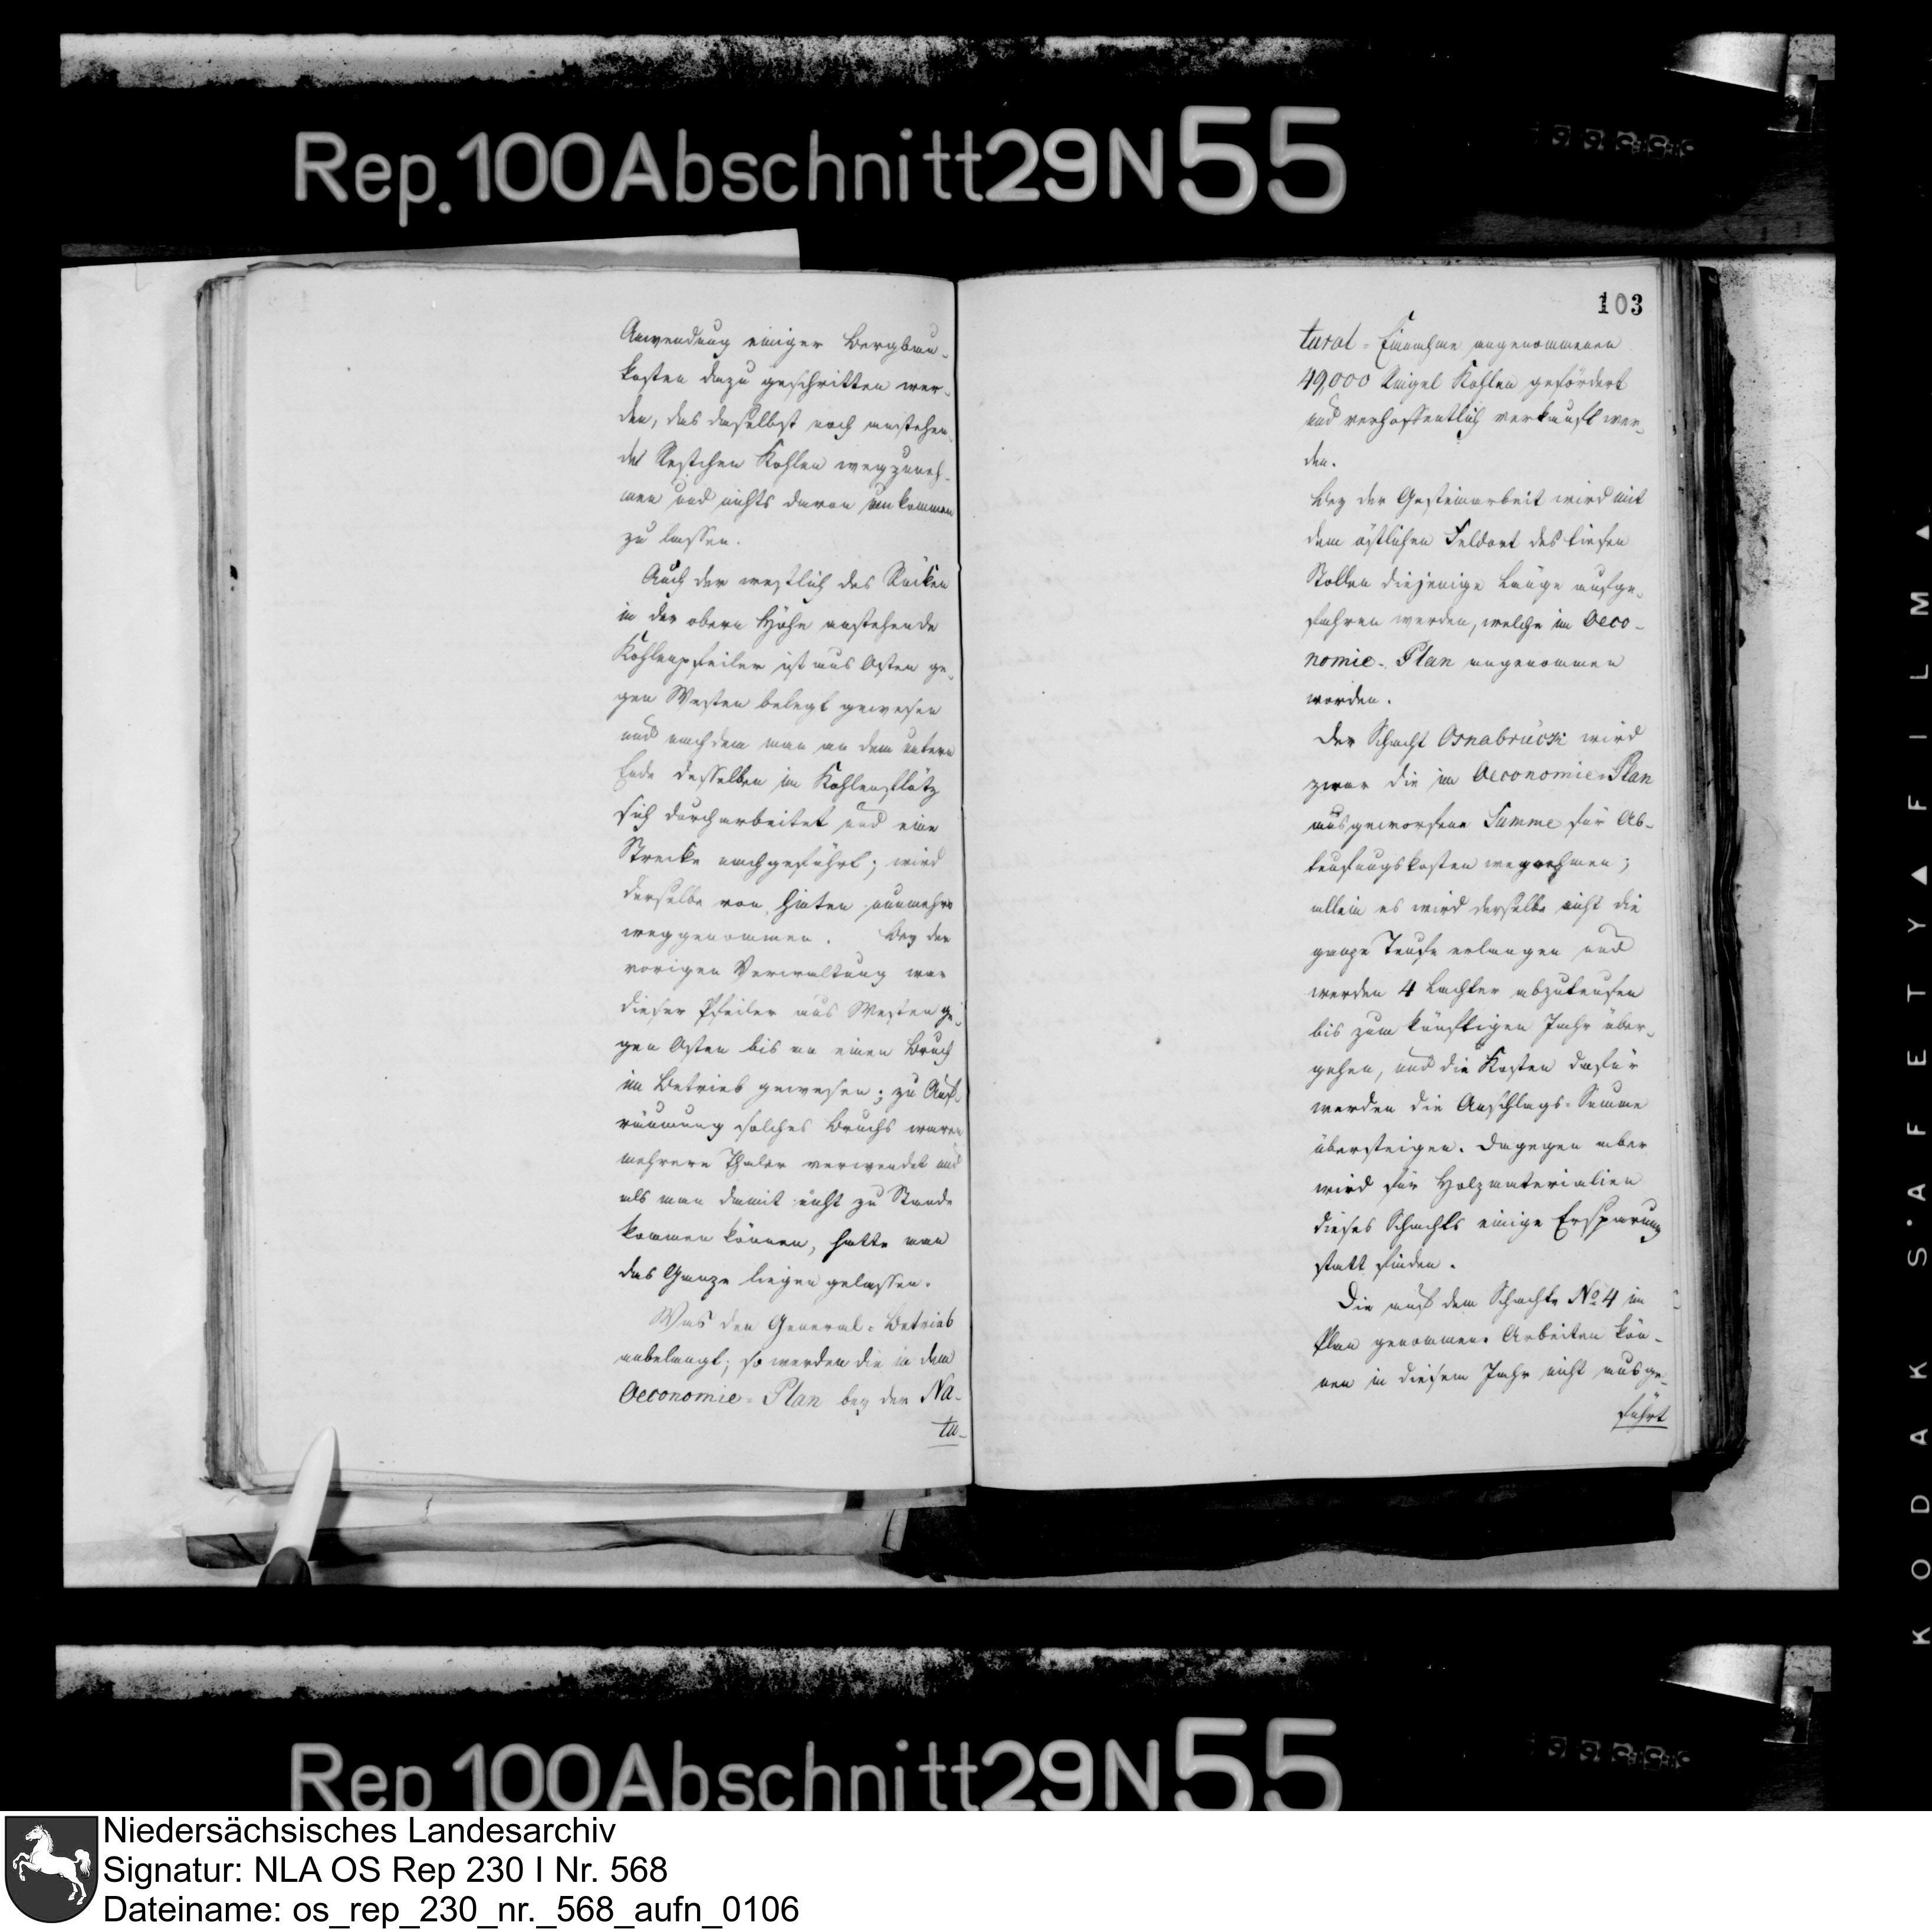 Rep. 100 Abschnitt 29 N 55
Anwendung einiger Bergbau-
kosten dazu geschritten wer-
den, das daselbst noch anstehen-
de Restchen Kohlen wegzuneh-
men und nichts davon umkommen
zu lassen.
Auch der westlich des Rücken
in der obern Höhe anstehende
Kohlenpfeiler ist aus Osten ge-
gen Westen belegt gewesen
und nachdem man an dem untern
Ende desselben im Kohlenflötz
sich durcharbeitet und eine
Strecke nachgeführt; wird
derselbe von hinten nunmehro
weggenommen. Bey der
vorigen Verwaltung war
dieser Pfeiler aus Westen ge-
gen Osten bis an einen Bruch
im Betrieb gewesen; zu Auf-
räumung solches Bruchs waren
mehrere Thaler verwendet und
als man damit nicht zu Stande
kommen können, hatte man
das Ganze liegen gelassen.
Was den General-Betrieb
anbelangt; so werden die in dem
Oeconomie-Plan bey der Na-
tu-
103
tural-Einnahme angenommenen
49,000 Ringel Kohlen gefördert
und verhoffentlich verkauft wer-
den.
Bey der Gesteinarbeit wird mit
dem östlichen Feldort des tiefen
Stollen diejenige Länge aufge-
fahren werden, welche im Oeco-
nomie-Plan angenommen
worden.
Der Schacht Osnabrück wird
zwar die im Oeconomie-Plan
ausgeworfene Summe für Ab-
teufungskosten wegnehmen;
allein es wird derselbe nicht die
ganze Teufe erlangen und
werden 4 Lachter abzuteufen
bis zum künftigen Jahr über-
gehen, und die Kosten dafür
werden die Anschlags-Summe
übersteigen. Dagegen aber
wird für Holzmaterialien
dieses Schachts einige Ersparung
statt finden.
Die auf dem Schachte No 4 im
Plan genommene Arbeiten kön-
nen in diesem Jahr nicht ausge-
führt
KODAK S·AFETY▲FILM▲
Rep 100 Abschnitt 29 N 55
Niedersächsisches Landesarchiv
Signatur: NLA OS Rep 230 I Nr. 568
Dateiname: os_rep_230_nr._568_aufn_0106